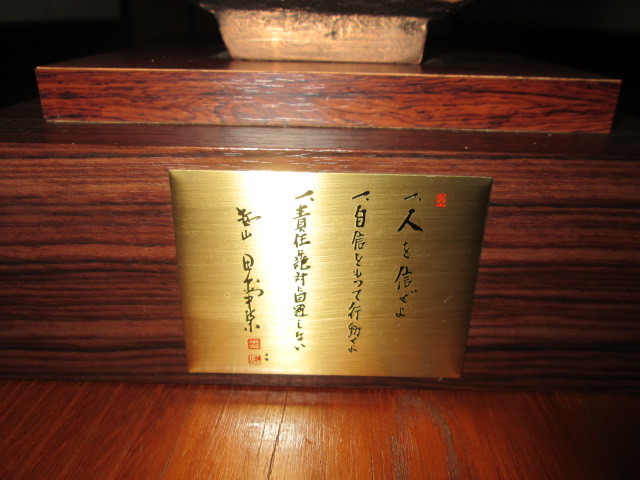 一、人を信ぜよ
一、自信をもって行動せよ
一、責任は絶対に回避しない